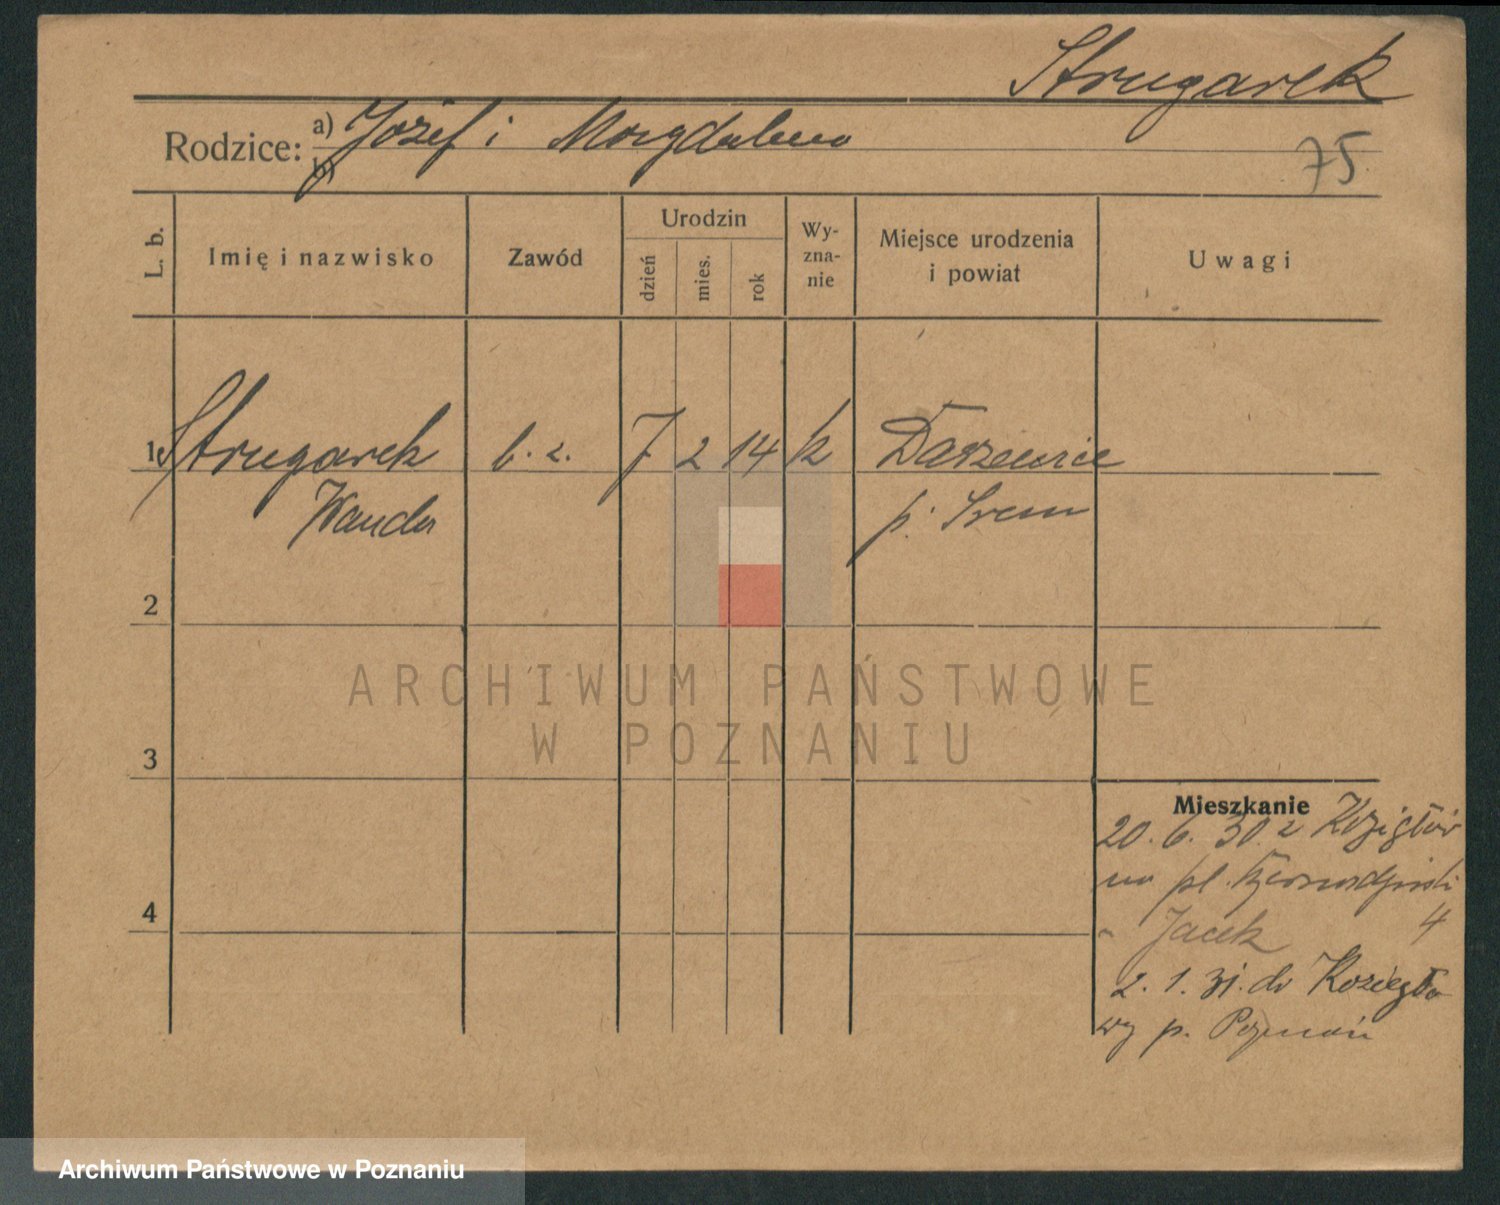 Strugarek
Rodzice: a) Józef i Magdalena
b)
75
L. b.
Imię i nazwisko
Zawód
Urodzin
dzień
mies.
rok
Wy-
zna-
nie
Miejsce urodzenia
i powiat
Uwagi
1 Strugarek b. z. 7 2 14 k
Wanda
p. Śrem
2
3
4
Mieszkanie
20. 6. 30. z Koziegłów
na pl. Bernardyński
" Jacek 4
2. 1. 31. do Koziegło
wy p. Poznań
ARCHIWUM PAŃSTWOWE
W POZNANIU
Archiwum Państwowe w Poznaniu